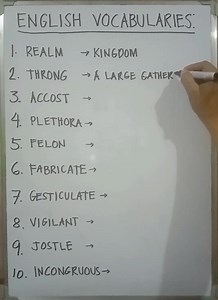 ENGLISH VOCABULARIES:
1. REALM → KINGDOM
2. THRONG → A LARGE GATHER
3. ACCOST →
4. PLETHORA →
5. FELON →
6. FABRICATE →
7. GESTICULATE →
8. VIGILANT →
9. JOSTLE →
10. INCONGRUOUS →